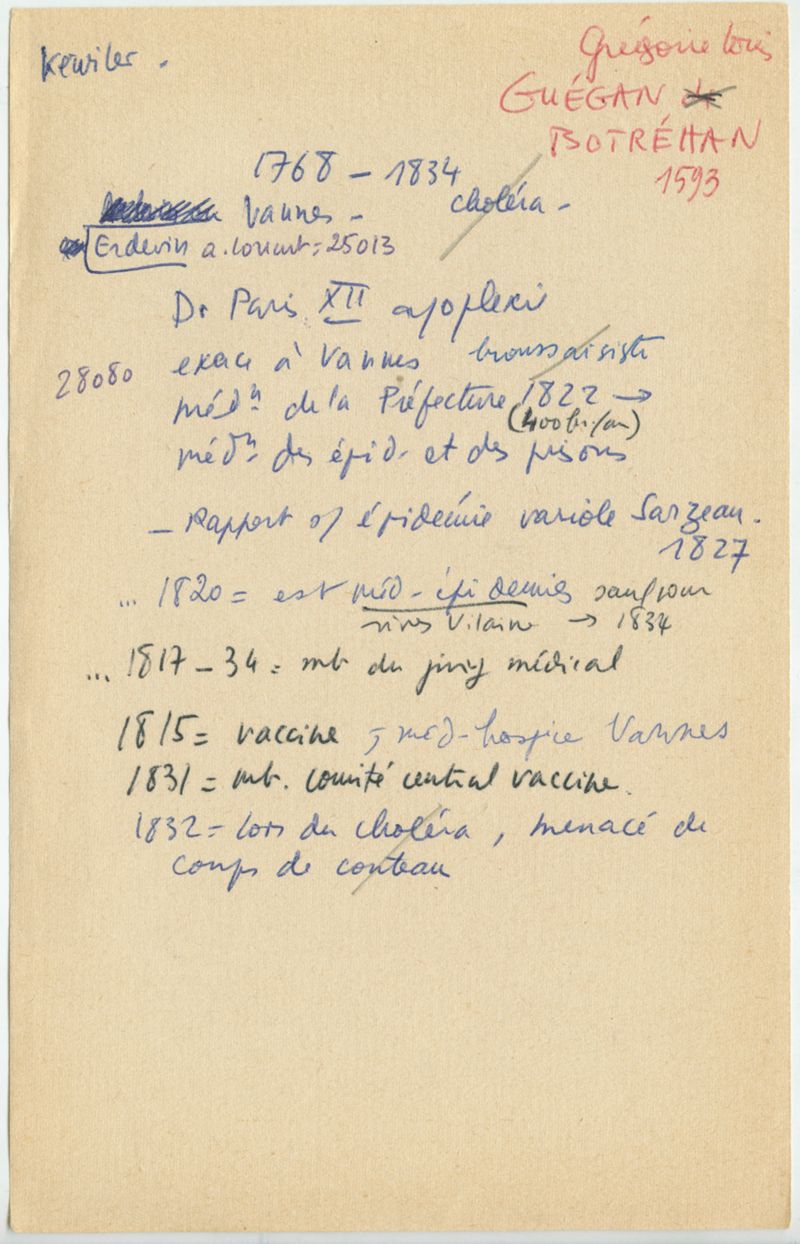 Kerviler.
Grégoire Louis
GUÉGAN de
BOTRÉHAN
1593
1768 - 1834
Vannes - choléra -
Erdeven a. Lorient = 25013
Dr Paris XII apoplexie
exace à Vannes broussaisiste
28080
médn de la Préfecture 1822 →
(400 fr/an)
médn des épid. et des prisons
- Rapport s/ épidémie variole Sarzeau.
1827
... 1820 = est méd-épidémies sauf pour
rives Vilaine → 1834
... 1817 - 34 = mb du jury médical
1815 = vaccine ; méd-hospice Vannes
1831 = mb. comité central vaccine.
1832 = lors du choléra, menacé de
coups de couteau